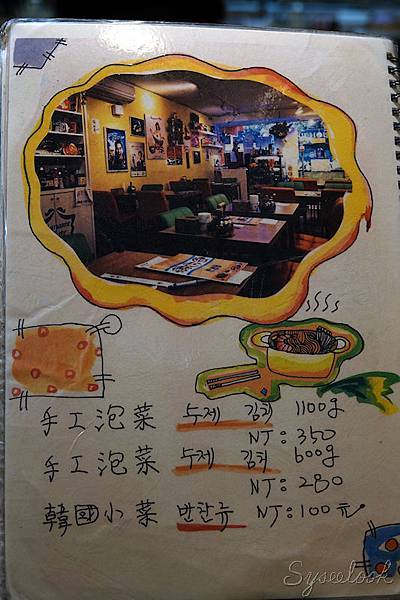 手工泡菜 수제 김치 1100g
NT:350
手工泡菜 수제 김치 600g
NT:280
韓國小菜 반찬류 NT:100元
Syseelook